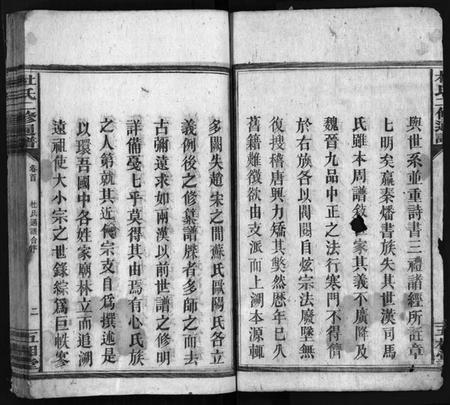 杜氏二修通譜
與世系並重詩書三禮譜經所註章
七明矣嬴秦燔書族失其世漢司馬
氏雖本周譜 家其義不廣降及
魏晉九品中正之法行寒門不得儕
於右族各以閥閱自炫宗法廢墜無
復搜稽唐興力矯其獘然歷年已久
舊籍難徵欲由支派而上溯本源輒
五桂堂
多闕失趙宋之間蘇氏歐陽氏各立
義例後之修輯譜牒者多師之而去
古彌遠求如兩漢以前世譜之修明
詳備戞七乎莫得其由焉有心氏族
之人第就其近 宗支自爲撰述是
以環吾國中各姓家廟林立而追溯
遠祖使大小宗之世錄綜爲巨帙寥
杜氏二修通譜
卷首
杜氏通譜合序
二
五桂堂